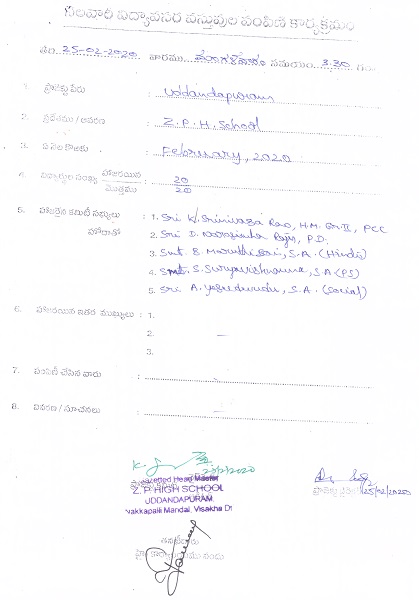 నెలవారీ విద్యావసర వస్తువుల పంపిణీ కార్యక్రమం
తేది 25-02-2020 వారము మంగళవారం సమయం 3.30 గం
1. ప్రాజెక్టు పేరు : Uddandapuram
2. ప్రదేశము / ఆవరణ : Z.P.H. School
3. ఏ నెల కొరకు : February, 2020
4. విద్యార్థుల సంఖ్య హాజరయిన 20
మొత్తము 20
5. హాజరైన కమిటీ సభ్యులు : 1. Sri K. Srinivasa Rao, H.M. Gr II, PCC
హోదాతో 2. Sri D. Narasimha Raju, P.D.
3. Smt. B. Maruthi Sri, S.A. (Hindi)
4. Smt. S. Suryavishnu, S.A (PS)
5. Sri A. Yasudundu, S.A. (Social)
6. హాజరయిన ఇతర ముఖ్యులు : 1.
2. –
3.
7. పంపిణీ చేసిన వారు :
8. వివరణ / సూచనలు :
25/2/2020
Gazetted Head Master
Z. P. HIGH SCHOOL
UDDANDAPURAM
Nakkapalli Mandal, Visakha Dt
25/02/2020